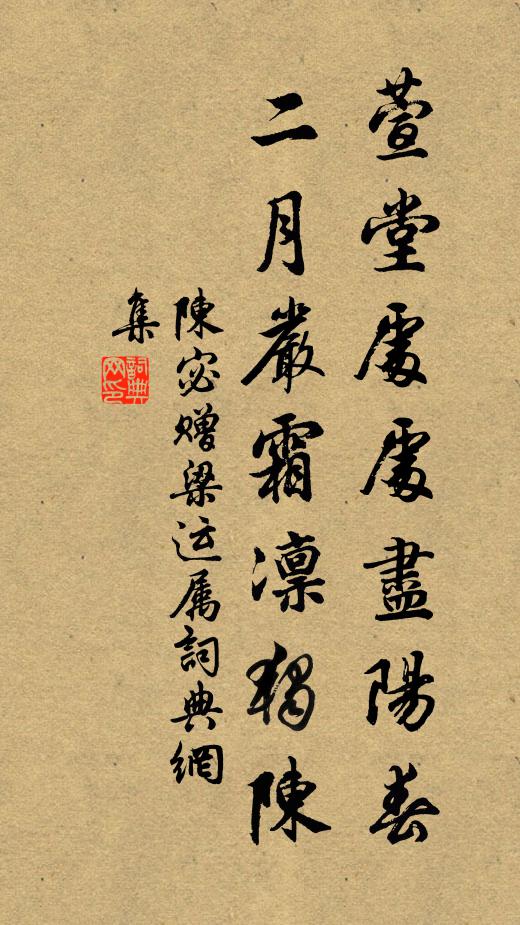 萱堂處處盡陽春
二月嚴霜凜獨陳
陳宓贈梁运属詞典網
集
詞典网印